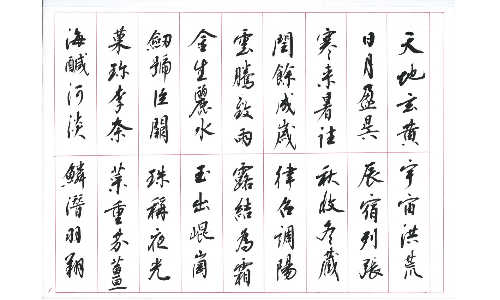 天地玄黃宇宙洪荒
日月盈昃辰宿列張
寒来暑往秋收冬藏
閏餘成歲律召調陽
雲騰致雨露結為霜
金生麗水玉出崐崗
劒號巨闕珠稱夜光
菓珍李柰菜重芥薑
海鹹河淡鱗潛羽翔